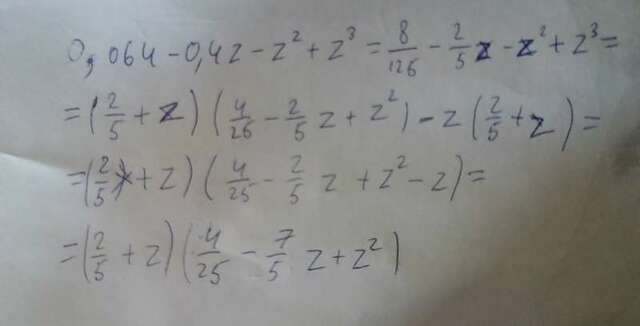 0,064-0,4z-z²+z³=8/125-2/5z-z²+z³=
=(2/5+z)(4/25-2/5z+z²)-z(2/5+z)=
=(2/5+z)(4/25-2/5z+z²-z)=
=(2/5+z)(4/25-7/5z+z²)